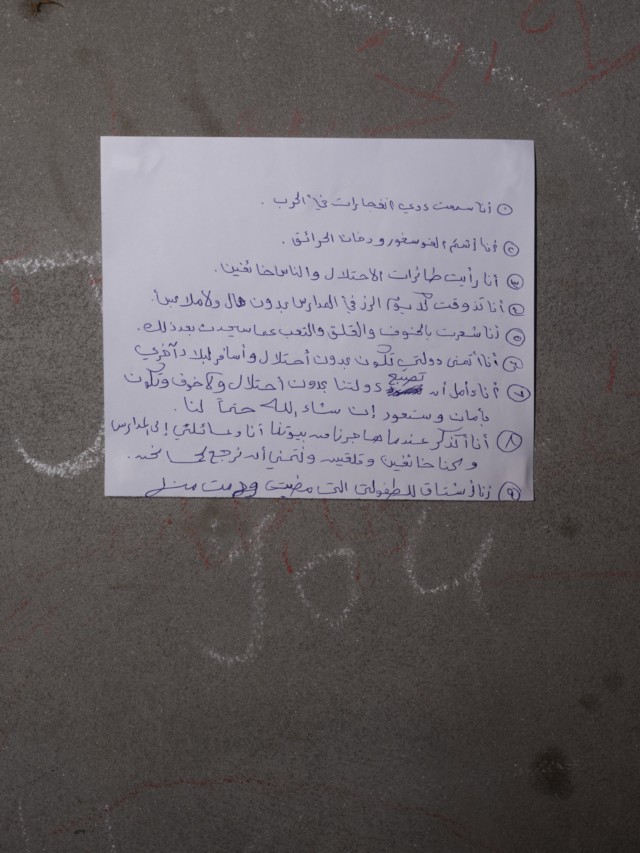 ① أنا سمعت دوي انفجارات في الحرب .
② أنا أشم الفوسفور ودخان الحرائق .
③ أنا رأيت طائرات الاحتلال والناس خائفين .
④ أنا تذوقت كل يوم الرز في المدارس بدون هال ولا ملا
⑤ أنا شعرت بالخوف والقلق والتعب عما سيحدث بعد ذلك .
⑥ أنا أتمنى دولتي تكون بدون أحتلال وأسافر لبلاد آخرى
⑦ أنا دأمل أن تصبح دولتنا بدون إحتلال ولا خوف ونكون
بأمان وسنعود إن شاء الله حتماً لنا .
⑧ أنا أتذكر عندما هاجرنا من بيوتنا أنا وعائلتي إلى المدارس
وكنا خائفين وقلقين ونتمنى أن نرجع
⑨ أنا أشتاق لطفولتي التي مضيت
you